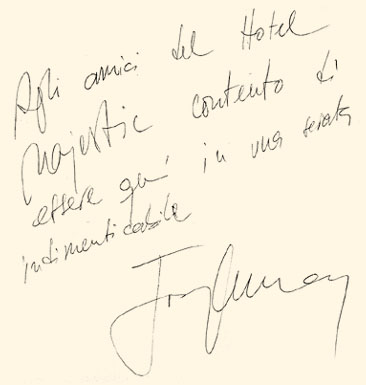 Agli amici del Hotel
Majestic contento di
essere quì in una serata
indimenticabile